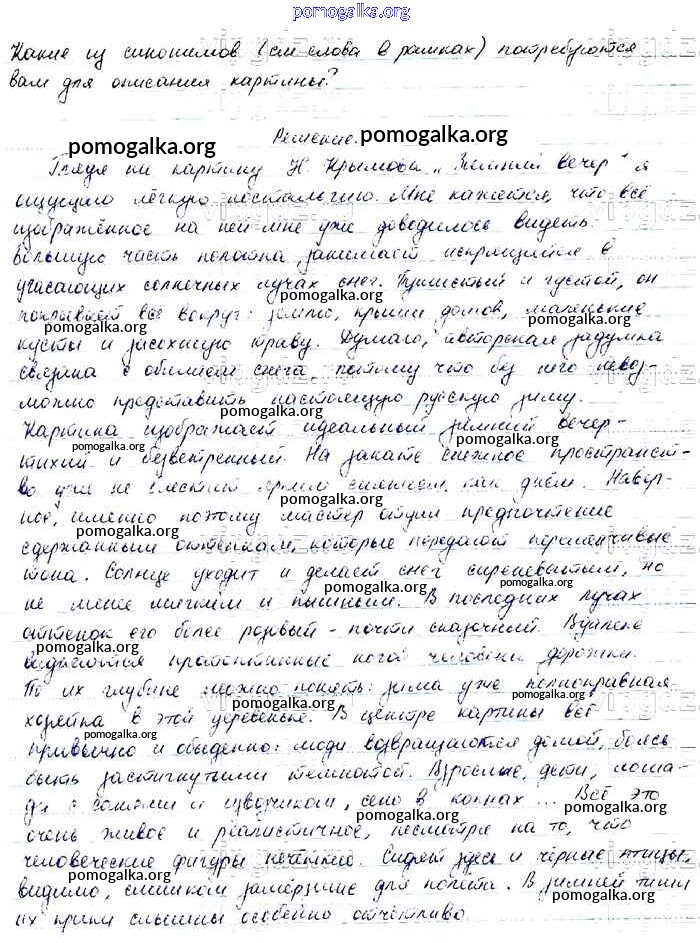 pomogalka.org
Какие из синонимов (см слова в рамках) потребуются
вам для описания картины?
Решение.
pomogalka.org
pomogalka.org
Глядя на картину Н. Крымова „Зимний вечер" я
ощущаю лёгкую ностальгию. Мне кажется, что всё
изображённое на ней мне уже доводилось видеть.
Большую часть полотна занимает искрящийся в
угасающих солнечных лучах снег. Пушистый и густой, он
pomogalka.org
покрывает всё вокруг: землю, крыши домов, маленькие
pomogalka.org
pomogalka.org
кусты и засохшую траву. Думаю, авторская задумка
связана с обилием снега, потому что без него невоз-
можно представить настоящую русскую зиму.
pomogalka.org
Картина изображает идеальный зимний вечер-
pomogalka.org
pomogalka.org
тихий и безветренный. На закате снежное пространст-
во уже не блестит ярким сиянием, как днём. Навер-
pomogalka.org
ное, именно поэтому мастер отдал предпочтение
pomogalka.org
сдержанным оттенкам, которые передают переменчивые
pomogalka.org
тона. Солнце уходит и делает снег сиреневатым, но
pomogalka.org
pomogalka.org
не менее мягким и пышным. В последних лучах
оттенок его более розовый - почти сказочный. Вдалеке
pomogalka.org
виднеются протоптанные ногой человека дорожки.
По их глубине можно понять: зима уже полноправная
pomogalka.org
хозяйка в этой деревеньке. В центре картины всё
pomogalka.org
привычно и обыденно: люди возвращаются домой, боясь
быть застигнутыми темнотой. Взрослые, дети, лоша-
ди с санями и извозчиком, сено в копнах... Всё это
pomogalka.org
pomogalka.org
очень живое и реалистичное, несмотря на то, что
человеческие фигуры нечёткие. Сидят здесь и чёрные птицы,
pomogalka.org
видимо, слишком замёрзшие для полёта. В зимней тиши
pomogalka.org
их крики слышны особенно отчётливо.
pomogalka.org